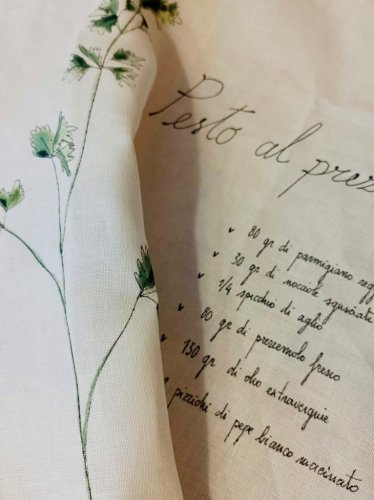 Pesto al prez
80 gr di parmigiano regg
30 gr di nocciole sgusciate
1/4 spicchio di aglio
80 gr di prezzemolo fresco
150 gr di olio extravergine
pizzichi di pepe bianco macinato